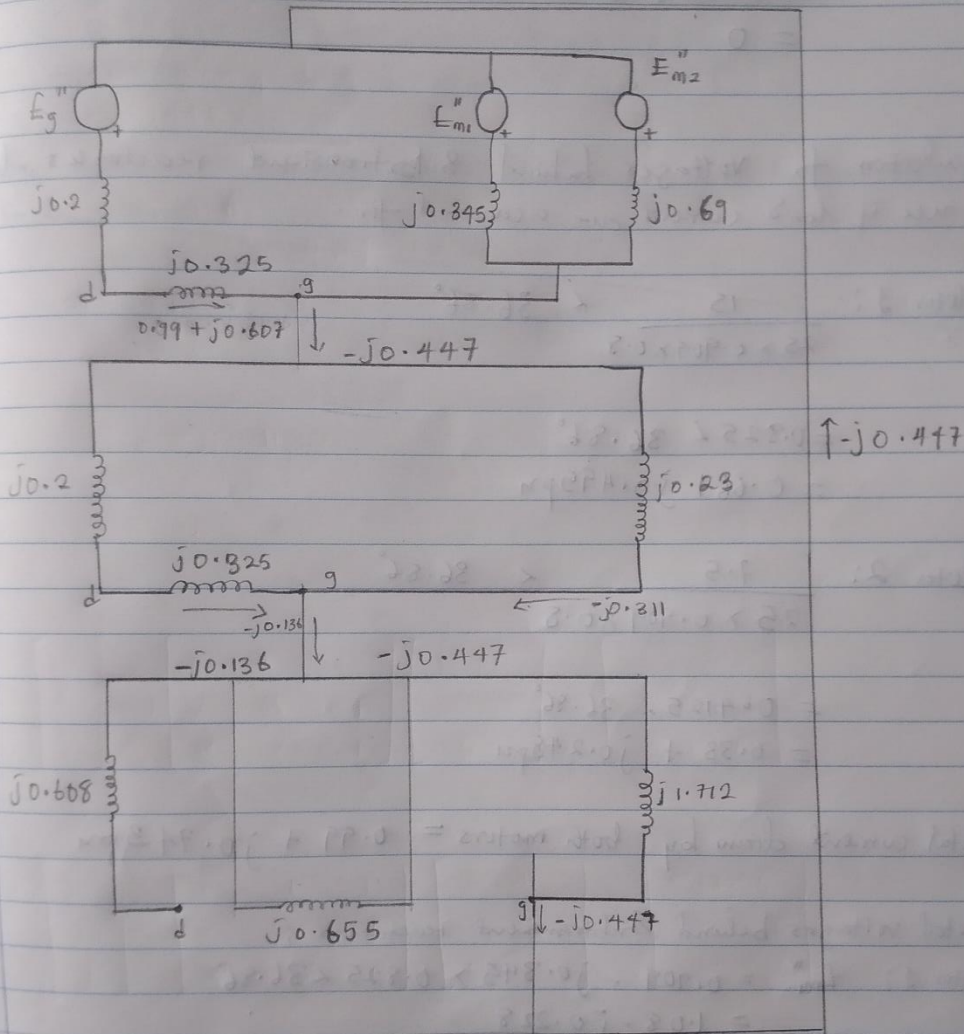 E"m2
Eg"
E"m1
+
+
+
j0.2
j0.345
j0.69
j0.325
d
g
0.99 + j0.607
-j0.447
↑-j0.447
j0.2
j0.23
j0.325
d
g
-j0.311
-j0.136
-j0.136
-j0.447
j0.608
j1.712
d
j0.655
g
-j0.447